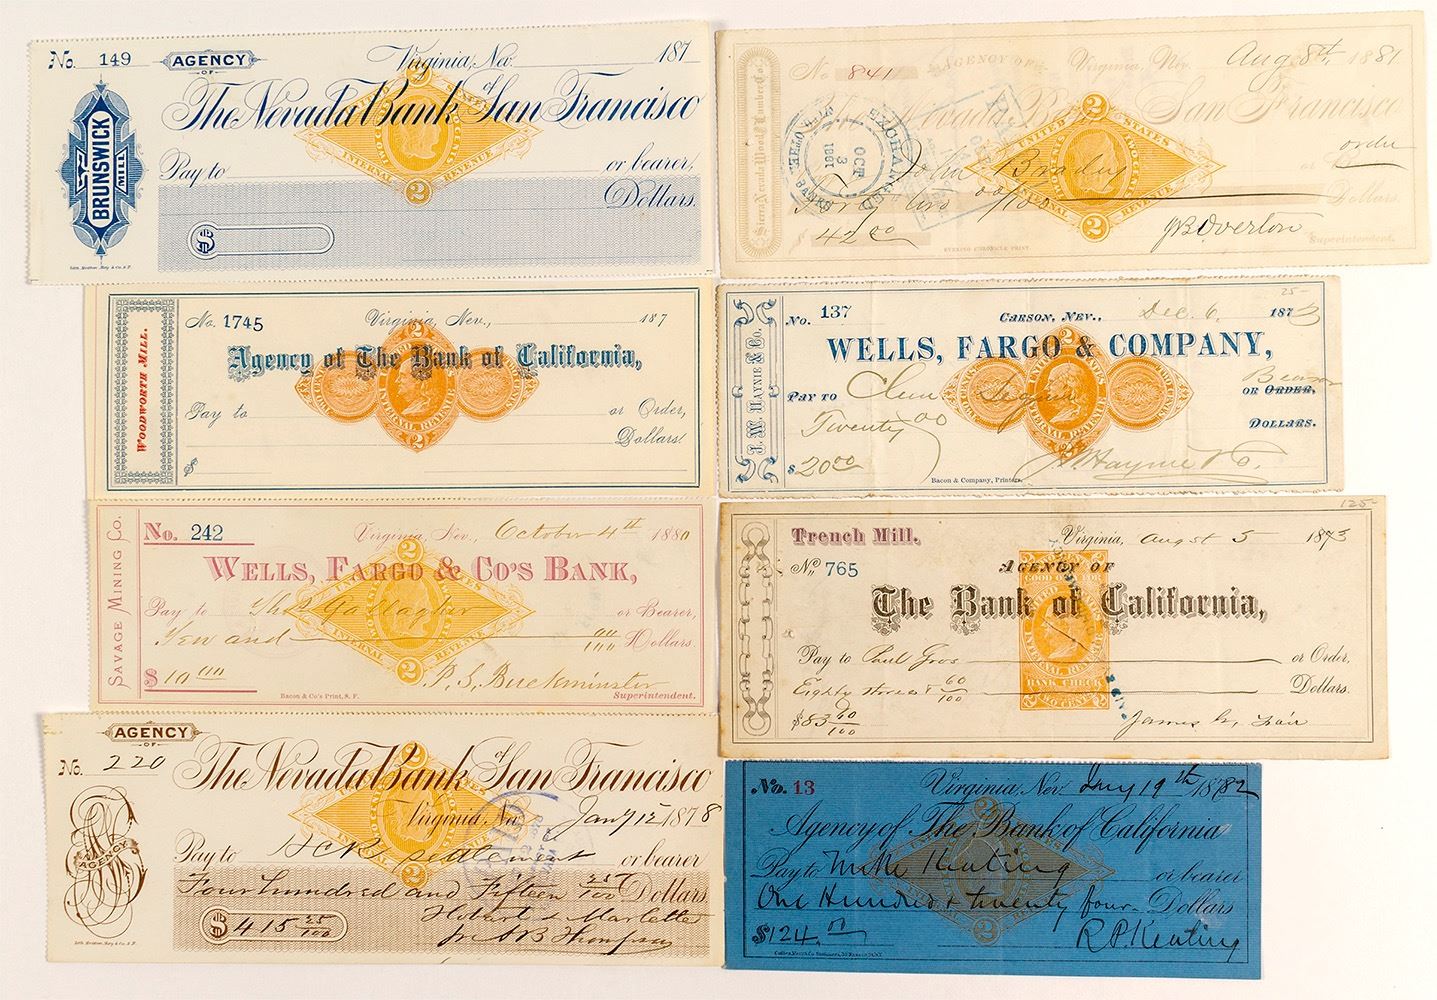 No. 149 AGENCY Virginia, Na. 187
OF
The Nevada Bank of San Francisco
BRUNSWICK
MILL
Pay to or bearer,
Dollars.
$
2
INTERNAL REVENUE
2
No 841 AGENCY OF Virginia, Nev. Aug 8th, 1881
The Nevada Bank of San Francisco
Sierra Nevada Wood & Lumber Co.
EXCHANGED
OCT
3
1881
BANKS
order
John Brady
Forty two 00/100 Dollars
$ 42 00 J B Overton
EVENING CHRONICLE PRINT Superintendent.
2
UNITED STATES
INTERNAL REVENUE
2
WOODWORTH MILL.
No. 1745 Virginia, Nev., 187
Agency of The Bank of California,
Pay to or Order,
Dollars
$
2
INTERNAL REVENUE
2
J. W. HAYNIE & Co.
No. 137 CARSON, NEV., Dec. 6, 1873
25-
WELLS, FARGO & COMPANY,
Bearer
PAY TO OR ORDER,
Twenty 00 DOLLARS.
$ 20 00 J W Haynie & Co.
Bacon & Company, Printers.
SAVAGE MINING Co.
No. 242 Virginia, Nev., October 4th 1880
WELLS, FARGO & CO'S BANK,
Pay to Thos Gallagher or Bearer,
Ten and 00/100 Dollars.
$ 10 00 P. S. Buckminster
Bacon & Co's Print, S. F. Superintendent.
2
INTERNAL REVENUE
2
125-
Trench Mill. Virginia, August 5 1873
No. 765 AGENCY OF
The Bank of California,
Pay to Paul Gros or Order,
Eighty three & 60/100 Dollars.
$83 60/100 James G. Fair
GOOD ONLY FOR
INTERNAL REVENUE
BANK CHECK
TWO CENTS
AGENCY
OF
No. 220 The Nevada Bank of San Francisco
Virginia, Na. Jany 12 1878
AGENCY
PAID
Pay to H C R settlement or bearer
Four hundred and Fifteen 25/100 Dollars
$ 415 25/100 Hobart & Marlette
pr A B Thompson
No. 13 Virginia, Nev. Jany 19th 1882
Agency of The Bank of California
Pay to Mike Keating or bearer
One Hundred & twenty four Dollars
$124.00 R P. Keating